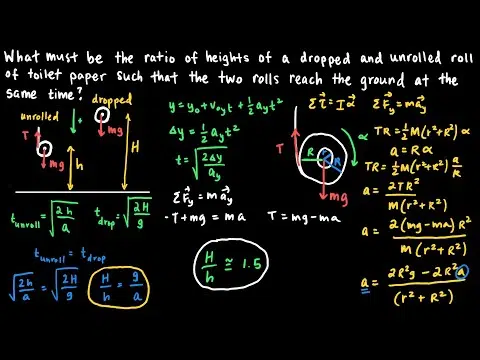 What must be the ratio of heights of a dropped and unrolled roll
of toilet paper such that the two rolls reach the ground at the
same time?
unrolled
dropped
T
mg
+
mg
h
H
t_unroll = √(2h/a)
t_drop = √(2H/g)
t_unroll = t_drop
√(2h/a) = √(2H/g)
H/h = g/a
y = y₀ + v₀yt + ½ a_y t²
Δy = ½ a_y t²
t = √(2Δy/a_y)
ΣF⃗_y = m a⃗_y
-T + mg = ma
T = mg - ma
H/h ≅ 1.5
Στ⃗ = Iα⃗
T
R
r
R
α
mg
ΣF⃗_y = m a⃗_y
TR = ½ M(r² + R²) α
a = Rα
TR = ½ M(r² + R²) a/R
a = 2TR² / m(r² + R²)
a = 2(mg - ma)R² / m(r² + R²)
a = 2R²g - 2R²a / (r² + R²)